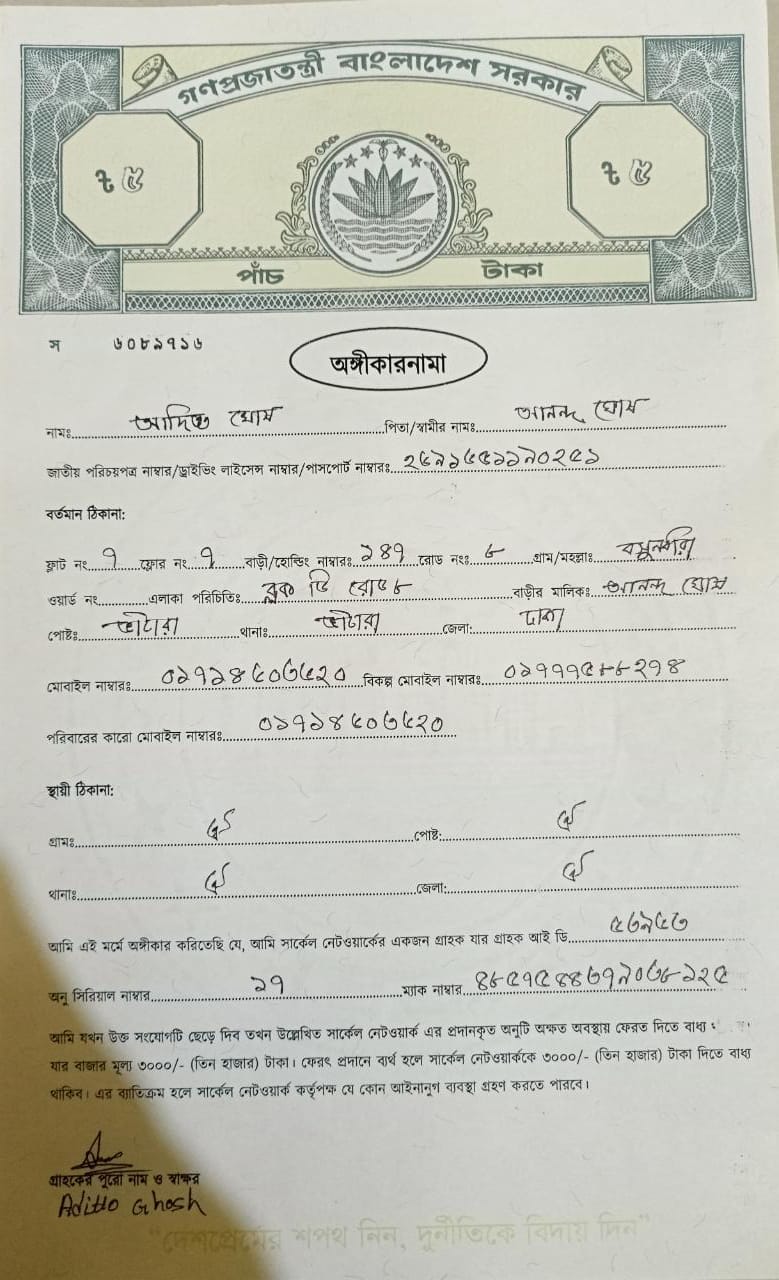 গণপ্রজাতন্ত্রী বাংলাদেশ সরকার
৳ ৫ ৳ ৫
পাঁচ টাকা
স ৬০৮৯৭১৬
অঙ্গীকারনামা
নামঃ আদিত্ত ঘোষ পিতা/স্বামীর নামঃ আনন্দ ঘোষ
জাতীয় পরিচয়পত্র নাম্বার/ড্রাইভিং লাইসেন্স নাম্বার/পাসপোর্ট নাম্বারঃ
বর্তমান ঠিকানা:
ফ্লাট নং ৭ ফ্লোর নং ৭ বাড়ী/হোল্ডিং নাম্বারঃ ১৪৭ রোড নংঃ ৮ গ্রাম/মহল্লাঃ বসুন্ধরা
ওয়ার্ড নং এলাকা পরিচিতিঃ ব্লক ডি রোড ৮ বাড়ীর মালিকঃ আনন্দ ঘোষ
পোষ্টঃ ভাটারা থানাঃ ভাটারা জেলা: ঢাকা
মোবাইল নাম্বারঃ ০১৭১৪৫০৬৫২০ বিকল্প মোবাইল নাম্বারঃ ০১৭৭৭৫৮৮২৭৪
পরিবারের কারো মোবাইল নাম্বারঃ ০১৭১৪৫০৬৫২০
স্থায়ী ঠিকানা:
গ্রামঃ পোষ্ট:
থানাঃ জেলা:
আমি এই মর্মে অঙ্গীকার করিতেছি যে, আমি সার্কেল নেটওয়ার্কের একজন গ্রাহক যার গ্রাহক আই ডি
অনু সিরিয়াল নাম্বার ১৭ ম্যাক নাম্বার
আমি যখন উক্ত সংযোগটি ছেড়ে দিব তখন উল্লেখিত সার্কেল নেটওয়ার্ক এর প্রদানকৃত অনুটি অক্ষত অবস্থায় ফেরত দিতে বাধ্য
যার বাজার মূল্য ৩০০০/- (তিন হাজার) টাকা। ফেরৎ প্রদানে ব্যর্থ হলে সার্কেল নেটওয়ার্ককে ৩০০০/- (তিন হাজার) টাকা দিতে বাধ্য
থাকিব। এর ব্যতিক্রম হলে সার্কেল নেটওয়ার্ক কর্তৃপক্ষ যে কোন আইনানুগ ব্যবস্থা গ্রহণ করতে পারবে।
গ্রাহকের পুরো নাম ও স্বাক্ষর
Aditto Ghosh
"দেশপ্রেমের শপথ নিন, দুর্নীতিকে বিদায় দিন"